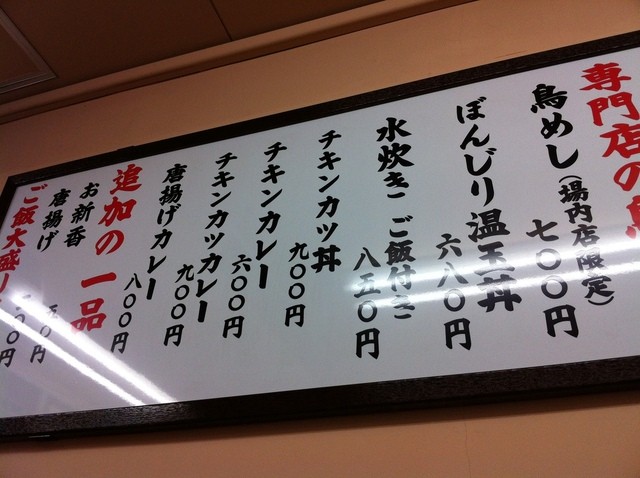 専門店の鳥
鳥めし(場内店限定)
七〇〇円
ぼんじり温玉丼
六八〇円
水炊き ご飯付き
八五〇円
チキンカツ丼
九〇〇円
チキンカレー
六〇〇円
チキンカツカレー
九〇〇円
唐揚げカレー
八〇〇円
追加の一品
お新香
唐揚げ
五〇円
ご飯大盛り
一〇〇円